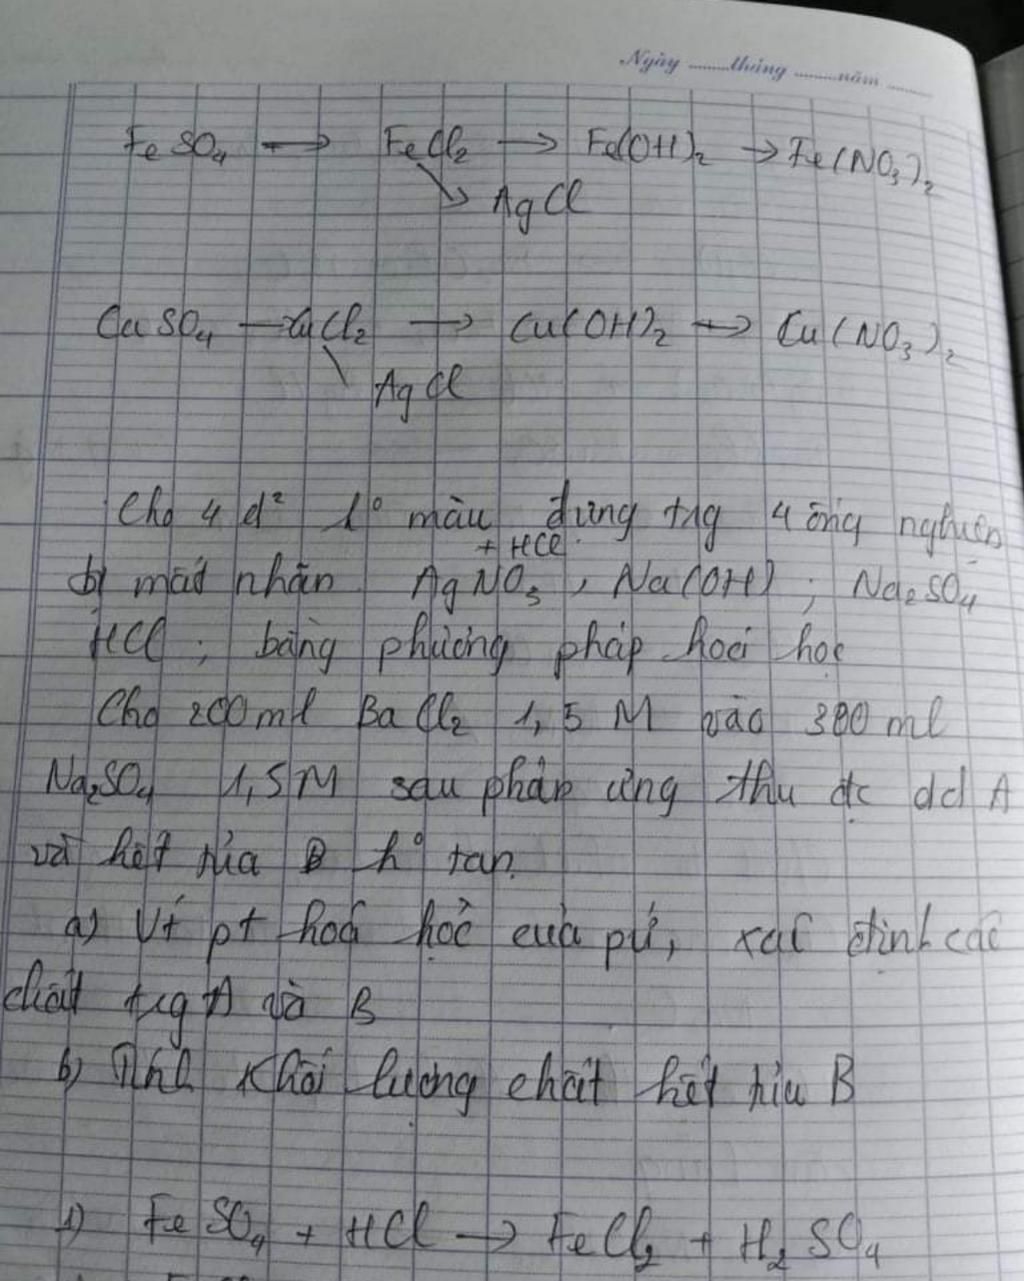 Ngày ........tháng .........năm ........
FeSO₄ → FeCl₂ → Fe(OH)₂ → Fe(NO₃)₂
↘ AgCl
CuSO₄ — CuCl₂ → Cu(OH)₂ → Cu(NO₃)₂
\ AgCl
Cho 4 d² k° màu đựng trg 4 ống nghiệm
+ HCl
bị mất nhãn AgNO₃, Na(OH); Na₂SO₄
HCl; bằng phương pháp hoá học
Cho 200ml BaCl₂ 1,5 M vào 300 ml
Na₂SO₄ 1,5M sau phản ứng thu đc dd A
và kết tủa B k° tan.
a) Vt pt hoá học của pứ, xác định các
chất trg A và B
b) Tính khối lượng chất kết tủa B
1) FeSO₄ + HCl → FeCl₂ + H₂SO₄